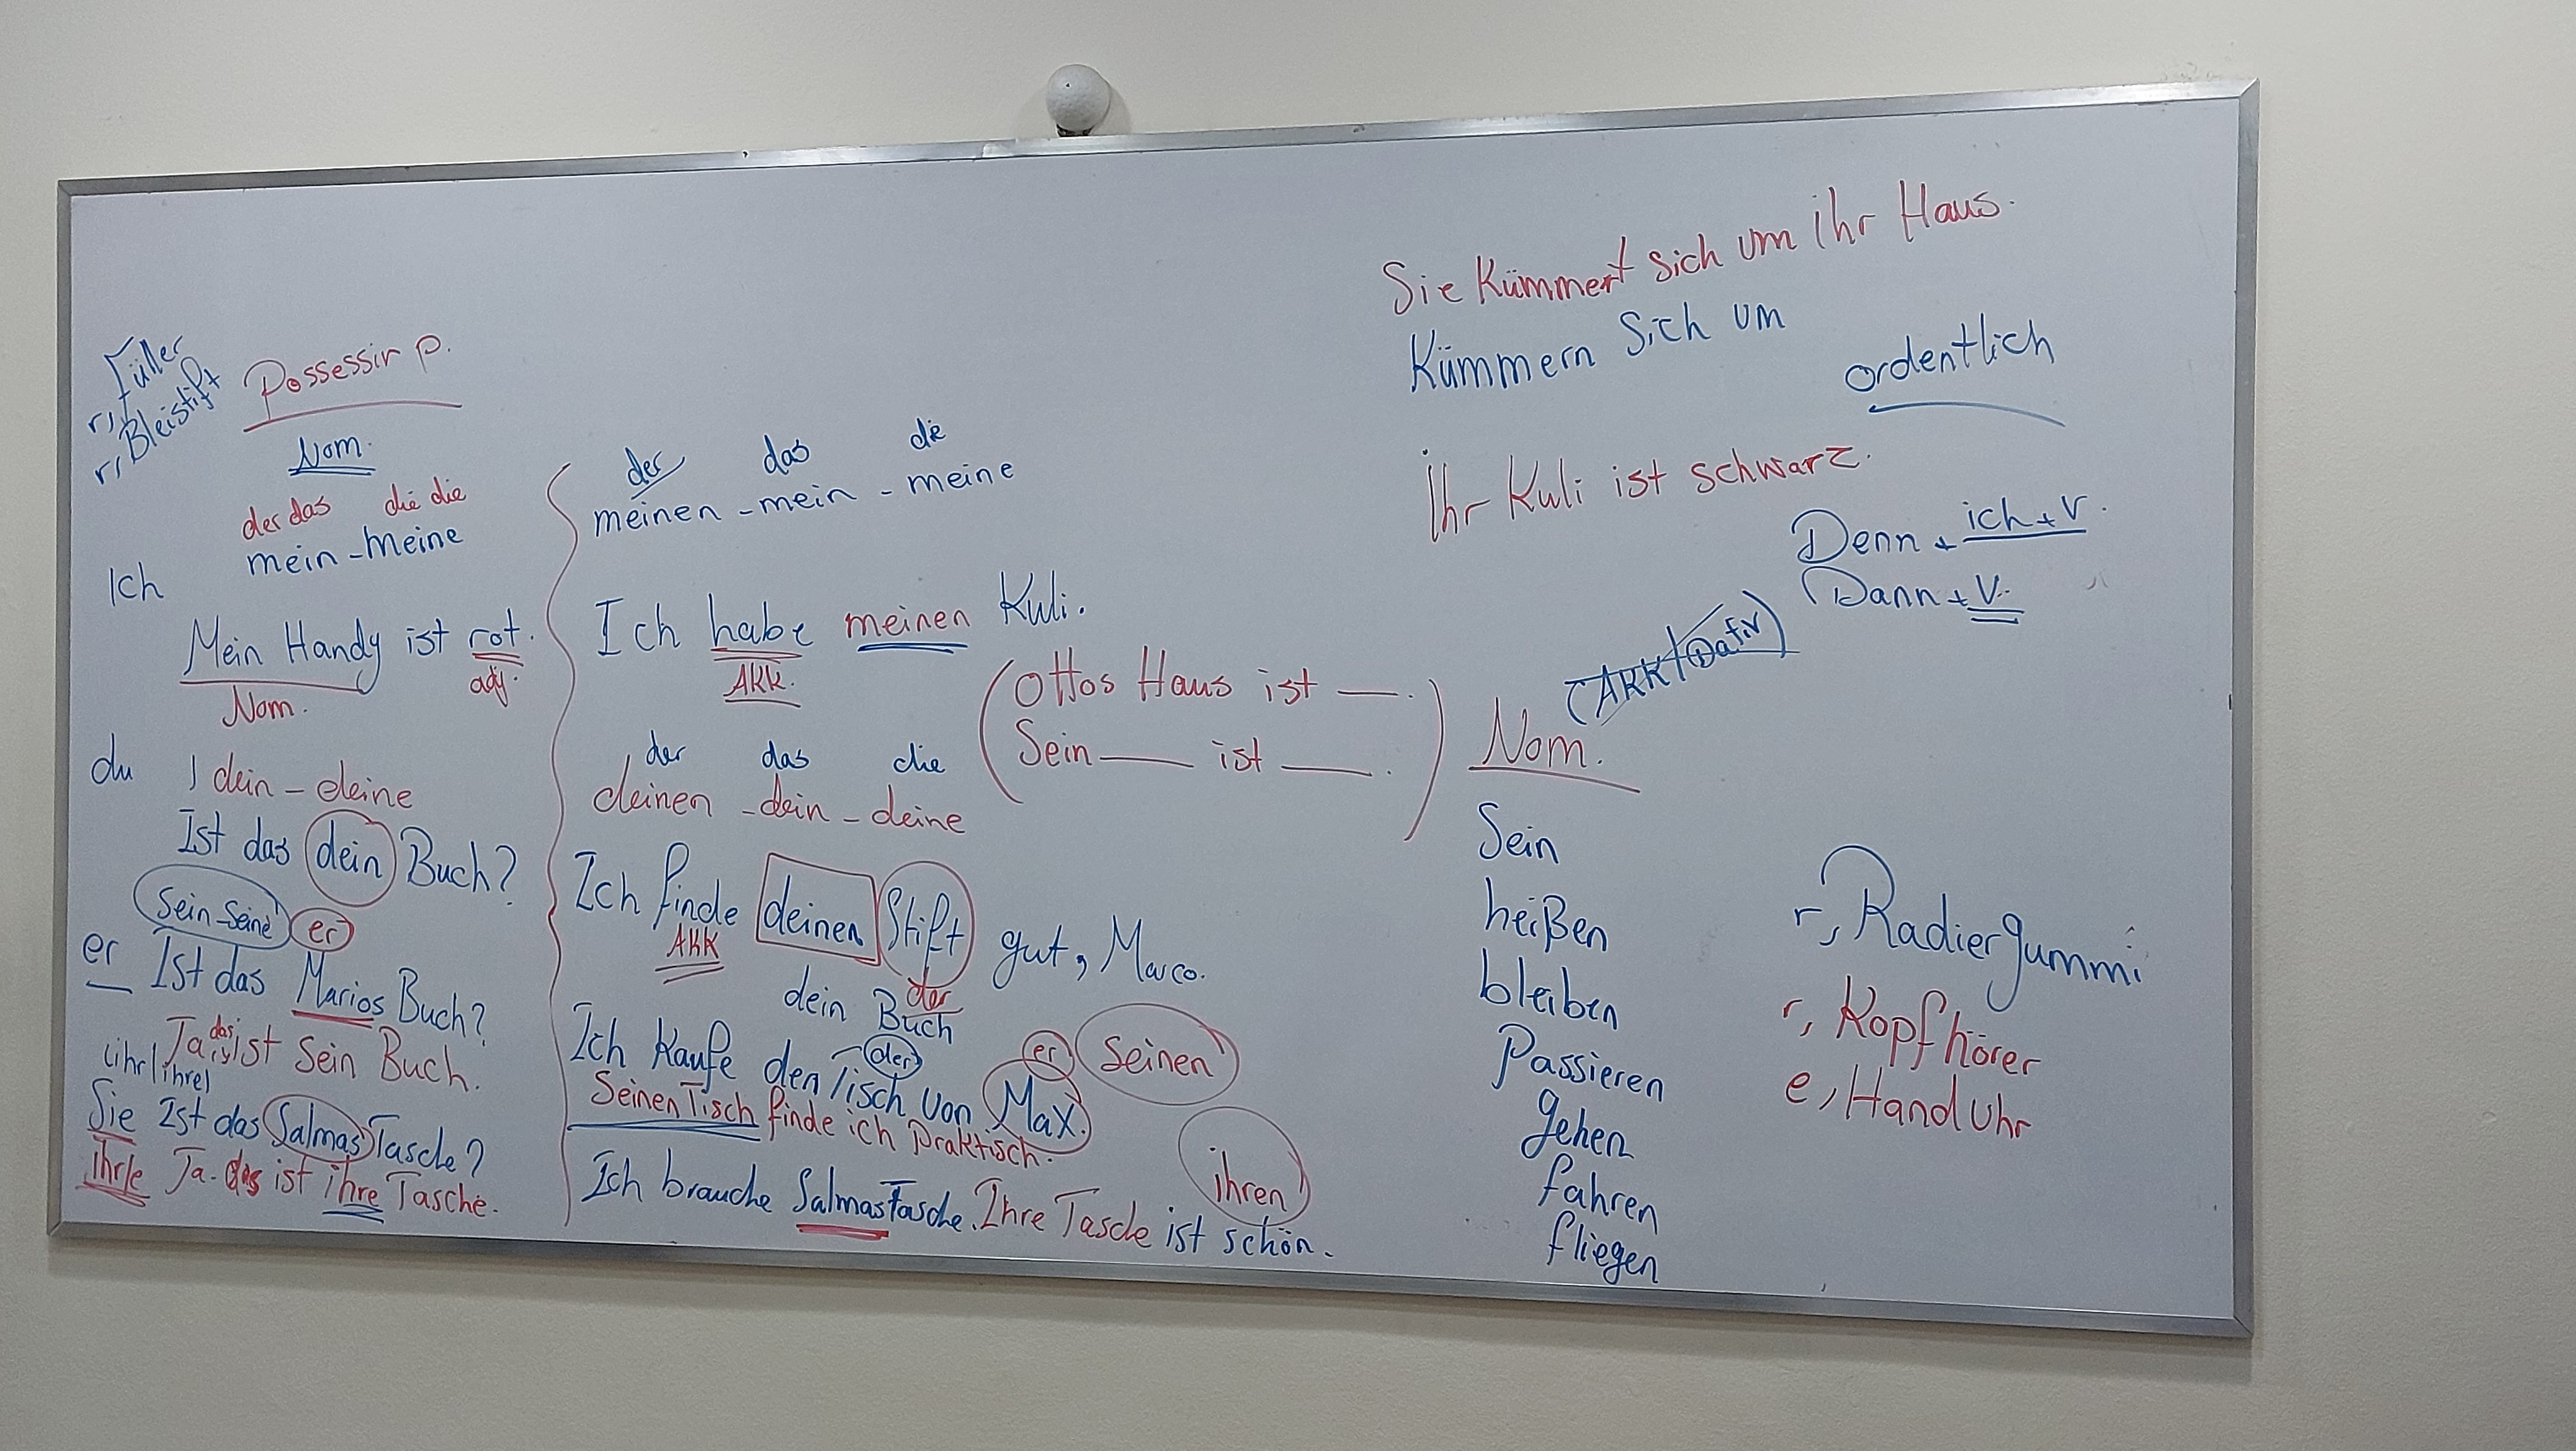 r, Füller
r, Bleistift
Possessiv p.
Nom.
der das die die
mein - meine
Ich
Mein Handy ist rot.
Nom. adj.
du dein - deine
Ist das dein Buch?
sein - seine er
er Ist das Marios Buch?
Ja das ist sein Buch.
(ihr/ihre)
Sie Ist das Salmas Tasche?
ihr/e Ja. das ist ihre Tasche.
der das die
meinen - mein - meine
Ich habe meinen Kuli.
AKK.
(Ottos Haus ist ___.
Sein ___ ist ___.)
der das die
deinen - dein - deine
Ich finde deinen Stift gut, Marco.
AKK der
dein Buch
Ich kaufe den Tisch von Max. er seinen
der
Seinen Tisch finde ich praktisch.
ihren
Ich brauche Salmas Tasche. Ihre Tasche ist schön.
Sie Kümmert sich um ihr Haus.
Kümmern Sich um
ordentlich
Ihr Kuli ist schwarz.
Denn + ich + V.
Dann + V.
(AKK/Dativ)
Nom.
Sein
heißen
bleiben
Passieren
gehen
fahren
fliegen
r, Radiergummi
r, Kopfhörer
e, Hand Uhr